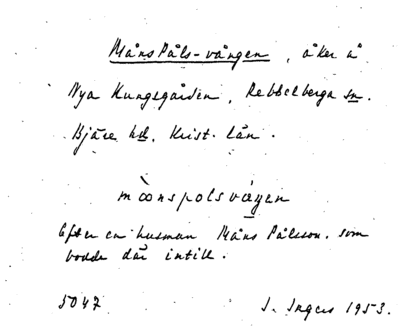 Måns Påls-vången, åker å
Nya Kungsgården, Rebbelberga sn.
Bjäre hd, Krist. län.
mòonspolsváŋen
Efter en husman Måns Pålsson, som
bodde där intill.
5047 I. Ingers 1953.